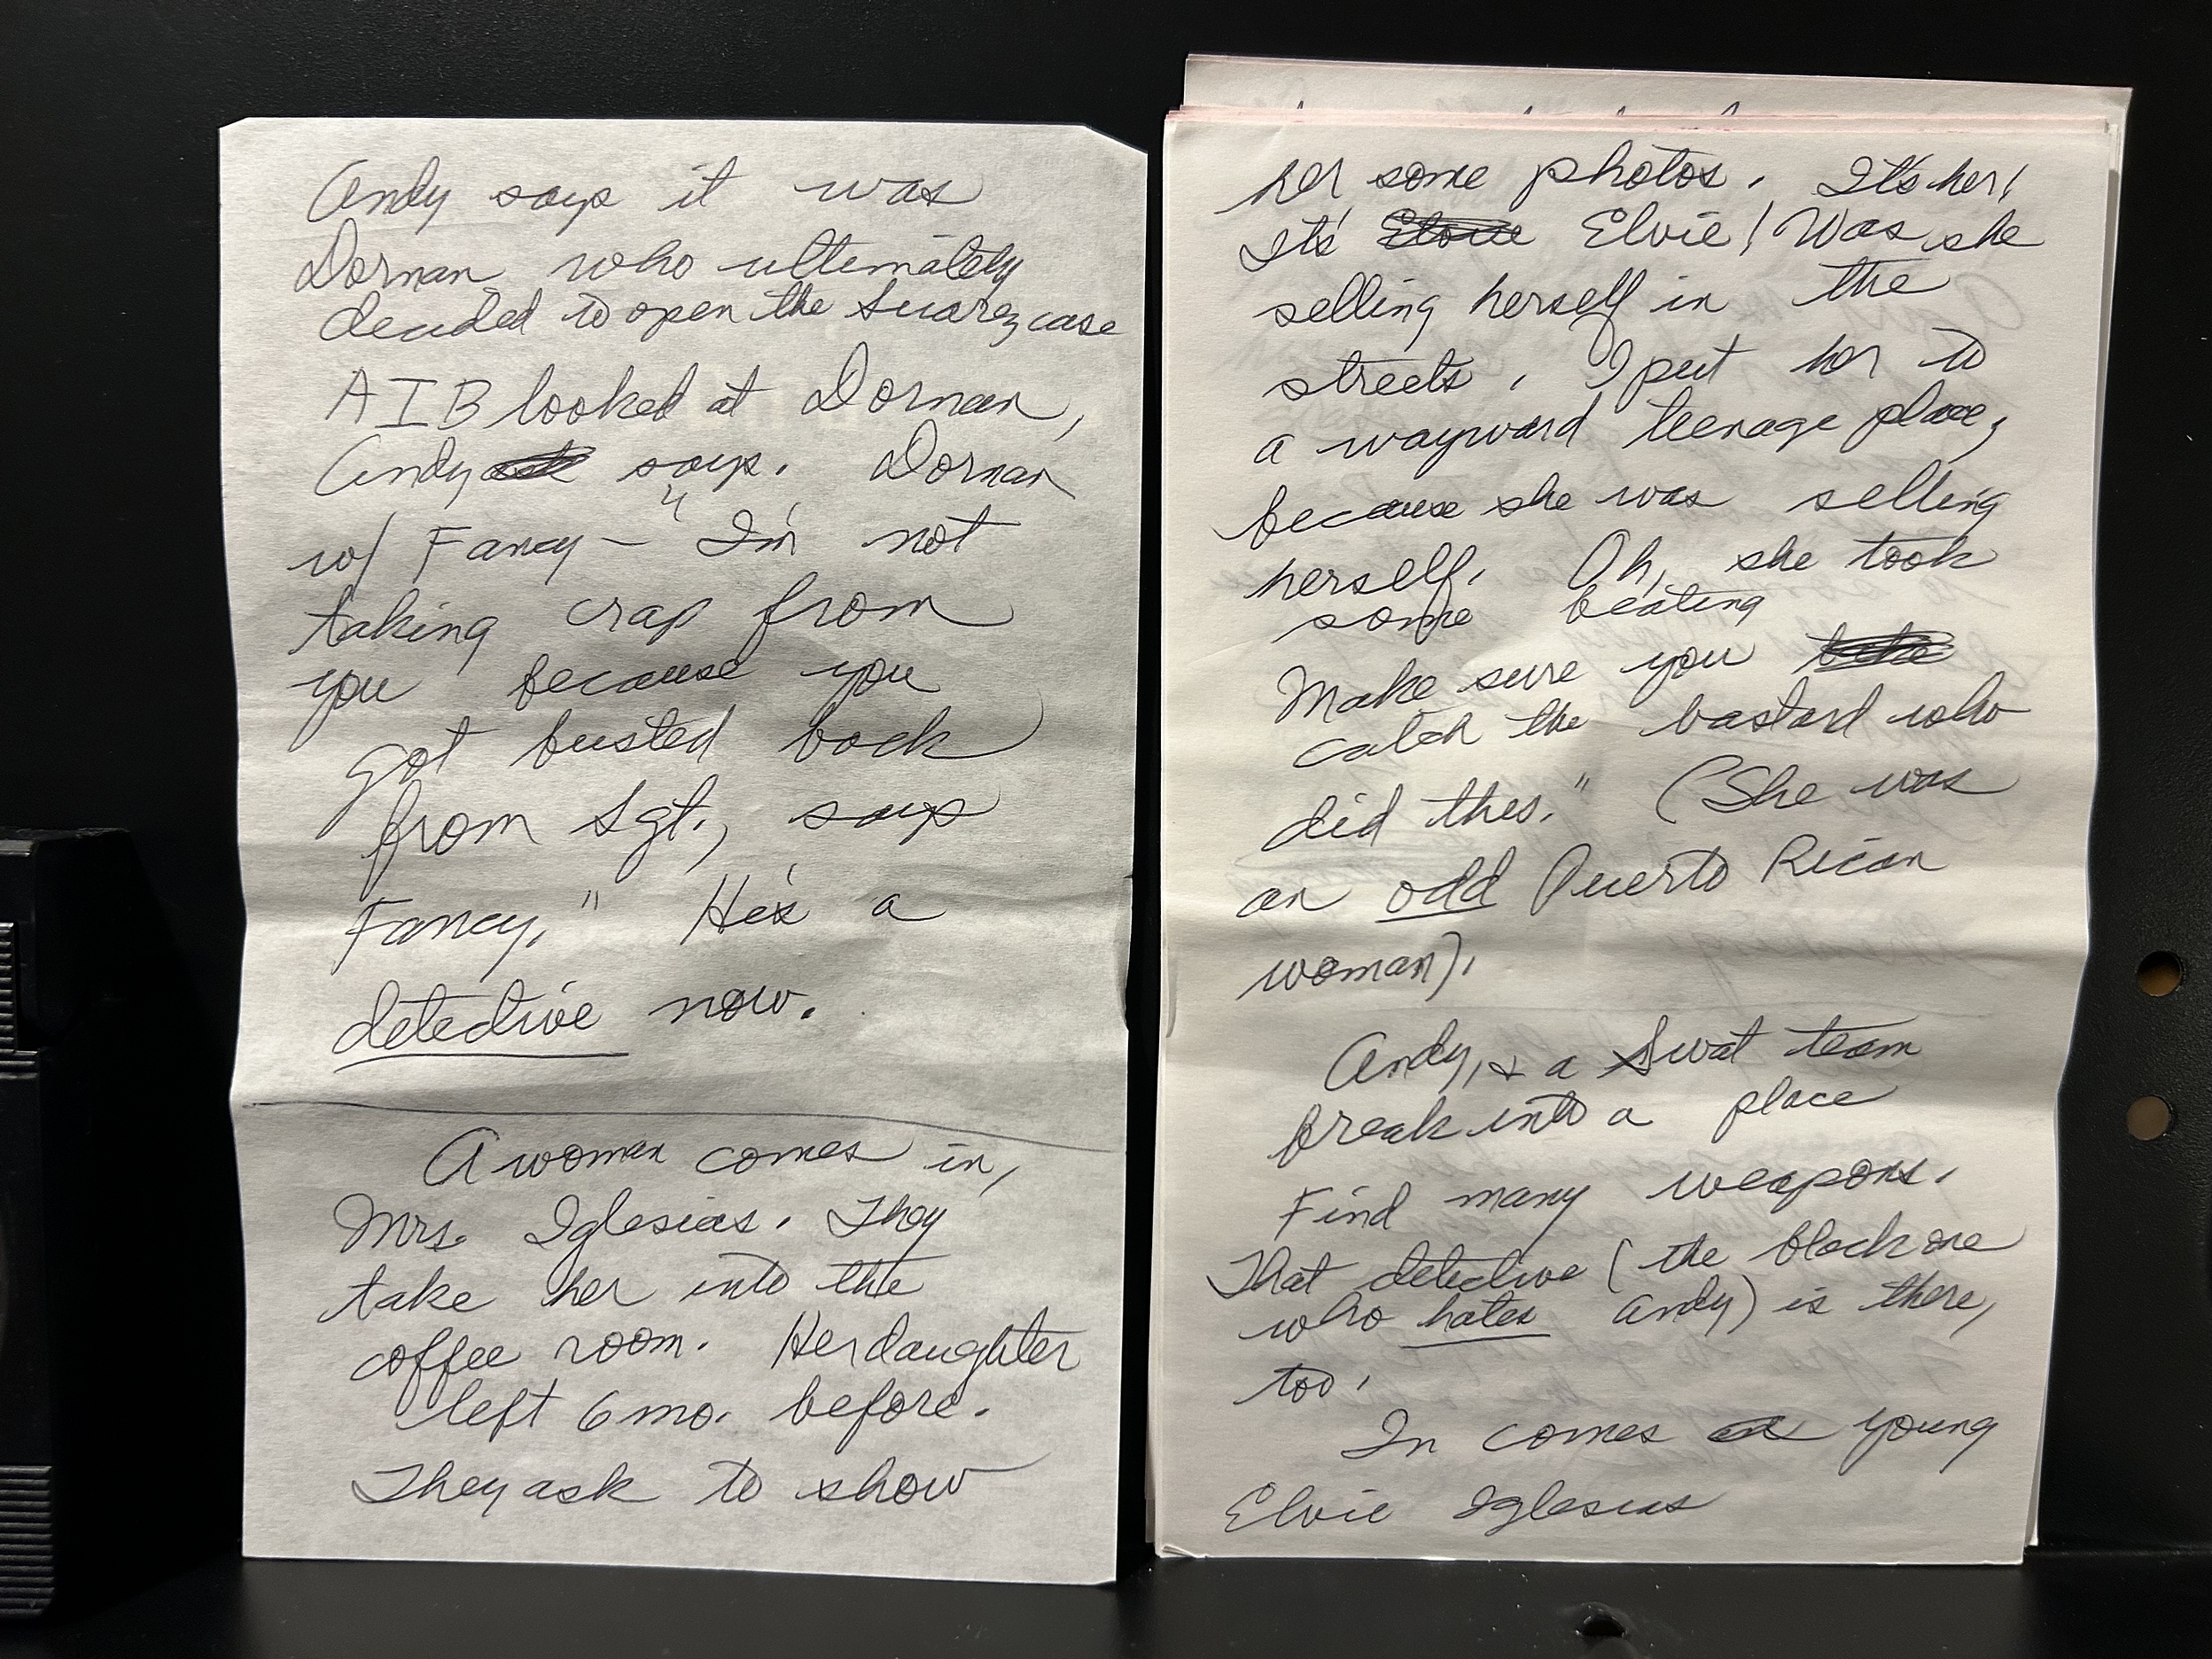 Andy says it was
Dornan who ultimately
decided to open the Suarez case
AIB looked at Dornan,
Andy says. Dornan
w/ Fancy - "I'm not
taking crap from
you because you
got busted back
from Sgt., says
Fancy." He's a
detective now.
A woman comes in,
Mrs. Iglesias. They
take her into the
coffee room. Her daughter
left 6 mo. before.
They ask to show
her some photos. It's her!
It's Elvie! Was she
selling herself in the
streets. I put her to
a wayward teenage place,
because she was selling
herself. Oh, she took
some beating
Make sure you
catch the bastard who
did this." (She was
an odd Puerto Rican
woman).
Andy, & a Swat team
break into a place
Find many weapons.
That detective (the black one
who hates Andy) is there,
too.
In comes young
Elvie Iglesias